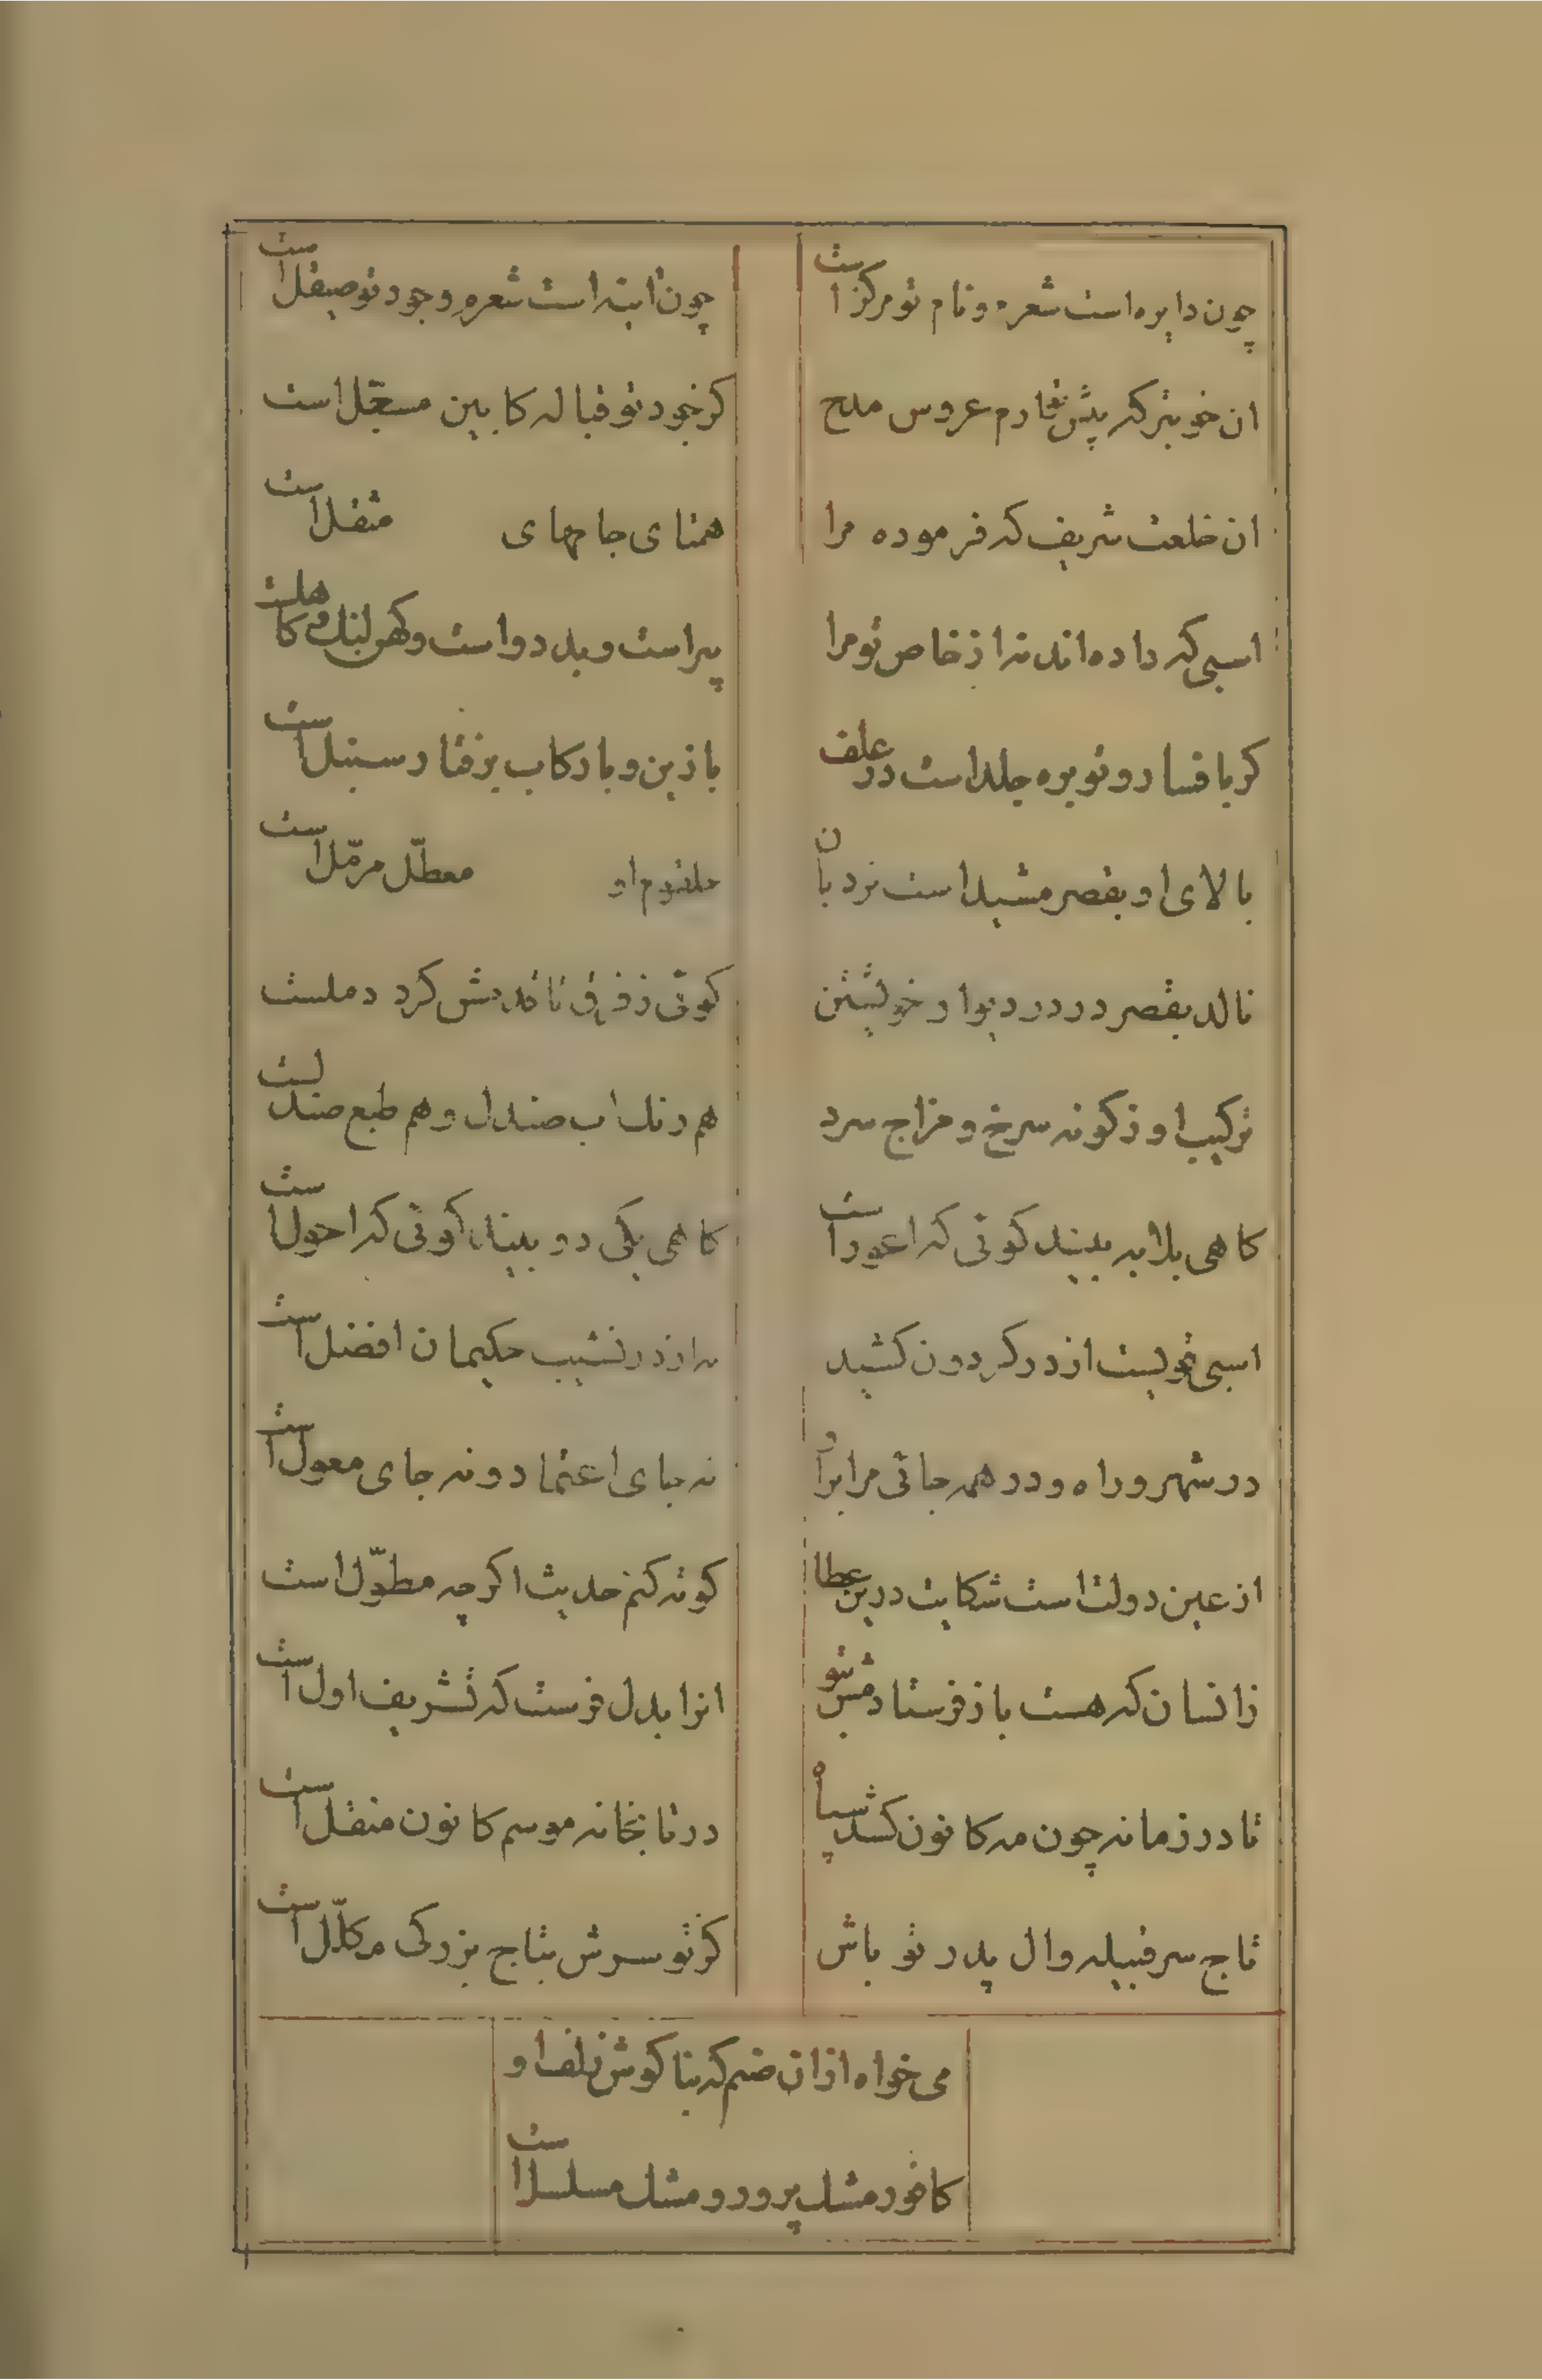 چون دایره است شعرم و نام تو مرکز است
چون آینه است شعرم وجود تو صیقل است
ان خوبتر که پیش تو ارم عروس مدح
کز جود تو قباله کابین مسجّل است
ان خلعت شریف که فرموده مرا
همتای جامهای مثقل است
اسبی که داده‌اند نه از خاص تو مرا
پیر است و بد دو است و کهن لنک و کاهلست
کر با فسار و توبره جلد است در علف
با زین و با رکاب برفتار سنبل است
بالای او بقصر مشید است نردبان
حلقوم او معطّل مرمّل است
نالد بقصر در در دیوار خویشتن
کوئی ز فرق تا قدمش کرد دملست
ترکیب او ز کونه سرخ و مزاج سرد
هم رنک اب صندل و هم طبع صندلست
کاهی بلا به بیند کوئی که اعور است
کاهی یکی دو بیند کوئی که احول است
اسبی نحویست از در کردون کشید
نه از در نشیب حکیمان افضل است
در شهر و راه و در همه جائی مرا برو
نه جای اعتماد و نه جای معول است
از عین دولت است شکایت درین عطا
کوته کنم حدیث اکرچه مطوّل است
زانسان که هست باز فرستادمش بتو
انرا بدل فرست که تشریف اول است
تا در زمانه چون مه کانون کشد سپاه
در تابخانه موسم کانون منقل است
تاج سر قبیله وال پدر تو باش
کز تو سرش بتاج بزرکی مکلّل است
می خواه ازان صنم که بناکوش زلف او
کافور مشک پرور و مشک مسلسل است